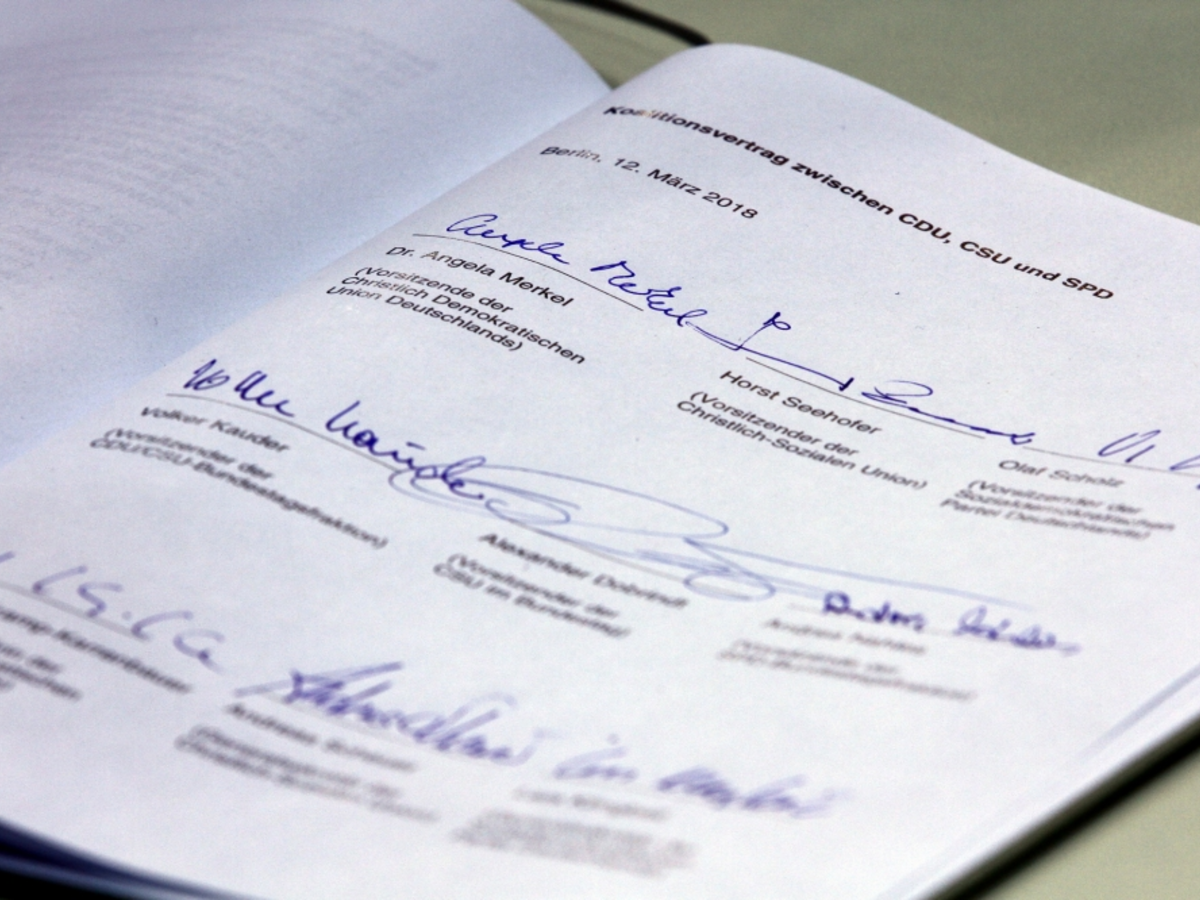 Koalitionsvertrag zwischen CDU, CSU und SPD
Berlin, 12. März 2018
Angela Merkel
Dr. Angela Merkel
(Vorsitzende der
Christlich Demokratischen
Union Deutschlands)
Horst Seehofer
(Vorsitzender der
Christlich-Sozialen Union)
Olaf Scholz
(Vorsitzender der
Sozialdemokratischen
Partei Deutschlands)
Volker Kauder
Volker Kauder
(Vorsitzender der
CDU/CSU-Bundestagsfraktion)
Alexander Dobrindt
(Vorsitzender der
CSU im Bundestag)
Andrea Nahles
Andrea Nahles
(Vorsitzende der
SPD-Bundestagsfraktion)
Karrenbauer
Andreas Scheuer